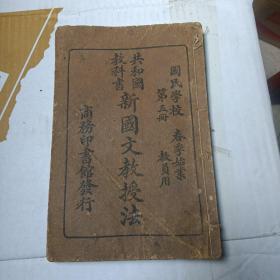 國民學校 春季始業
第三冊 教員用
共和國
教科書
新國文教授法
商務印書館發行